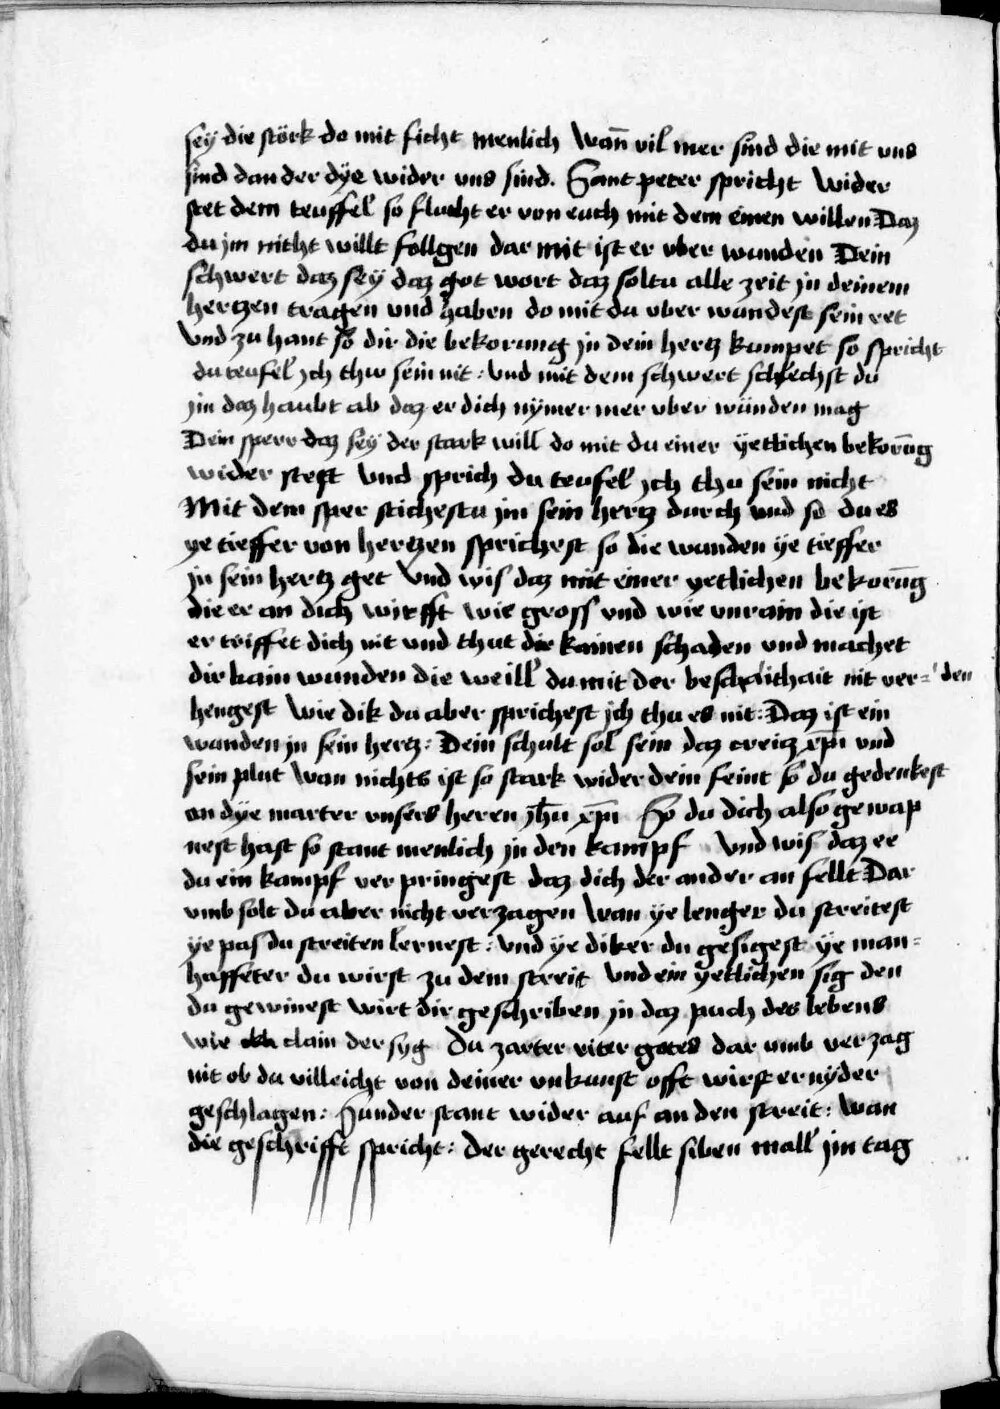 seÿ die störk do mit ficht menlich Wan̄ vil mer sind die mit vns
sind dan der dÿe wider vns sind. Sant peter spricht Wider
stet dem teuffel so flucht er von euch mit dem einen willen Daz
du jm nicht willt follgen dar mit ist er vber wunden Dein
schwert daz seÿ daz got wort daz soltu alle zeit jn deinem
hertzen tragen vnd haben do mit du vber wundest sein ret
Vnd zu hant so dir die bekorung jn dein hertz kumpet so spricht
du teufel jch thw sein nit : vnd mit dem schwert schlechst du
jm daz haubt ab daz er dich nÿmer mer vber wünden mag
Dein sperr daz seÿ der stark will do mit du einer ÿetlichen bekorūg
wider stest Vnd sprich du teufel jch thu sein nicht
Mit dem sper stichestu jm sein hertz durch vnd so du es
ye tieffer von hertzen sprichest so die wunden ÿe tieffer
jn sein hertz get Vnd wis daz mit einer yetlichen bekorūg
die er an dich wirfft wie gross vnd wie vnrain die ist
er triffet dich nit vnd thut dir kainen schaden vnd machet
dir kain wunden die weill du mit der beschaithait nit ver= den
hengest Wie dik du aber sprichest jch thu es nit : Daz ist ein
wunden jn sein hertz : Dein schult sol sein daz creitz xp̄i vnd
sein plut Wan nichts ist so stark wider dein feint so du gedenkest
an dÿe marter vnsers heren jhū xp̄i So du dich also gewap
nest hast so stant menlich jn den kampf Vnd wis daz ee
du ein kampf ver pringest daz dich der ander an fellt Dar
vmb solt du aber nicht verzagen Wan ÿe lenger du streitest
ÿe pas du streiten lernest : vnd ÿe diker du gesigest ÿe man=
haffeter du wirst zu dem streit Vnd ein yetlichen sig den
du gewinest wirt dir geschriben jn daz puch des lebens
wie clain der syg Du zarter riter gotes dar vmb verzag
nit ob du villeicht von deiner vnkunst offt wirst ernÿder
geschlagen : Sunder stant wider auf an den streit : Wan
die geschrifft spricht : der gerecht fellt siben mall jm tag